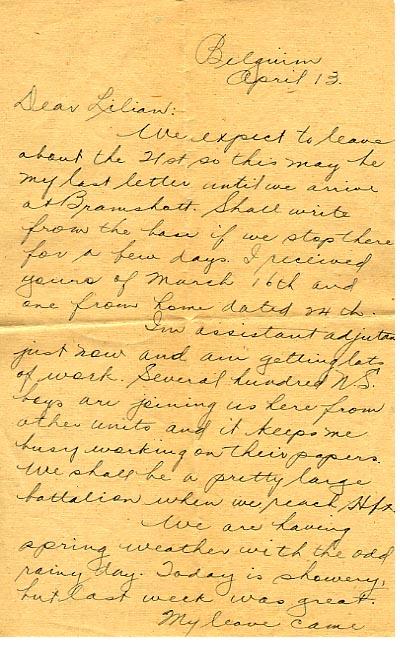 Belguim
April 13.
Dear Lilian:
We expect to leave
about the 21st so this may be
my last letter until we arrive
at Bramshott. Shall write
from the base if we stop there
for a few days. I received
yours of March 16th and
one from home dated 24th.
I'm assistant adjutan
just now and am getting lots
of work. Several hundred N.S.
boys are joining us here from
other units and it keeps me
busy working on their papers.
We shall be a pretty large
battalion when we reach Hfx.
We are having
spring weather with the odd
rainy day. Today is showery,
but last week was great.
My leave came